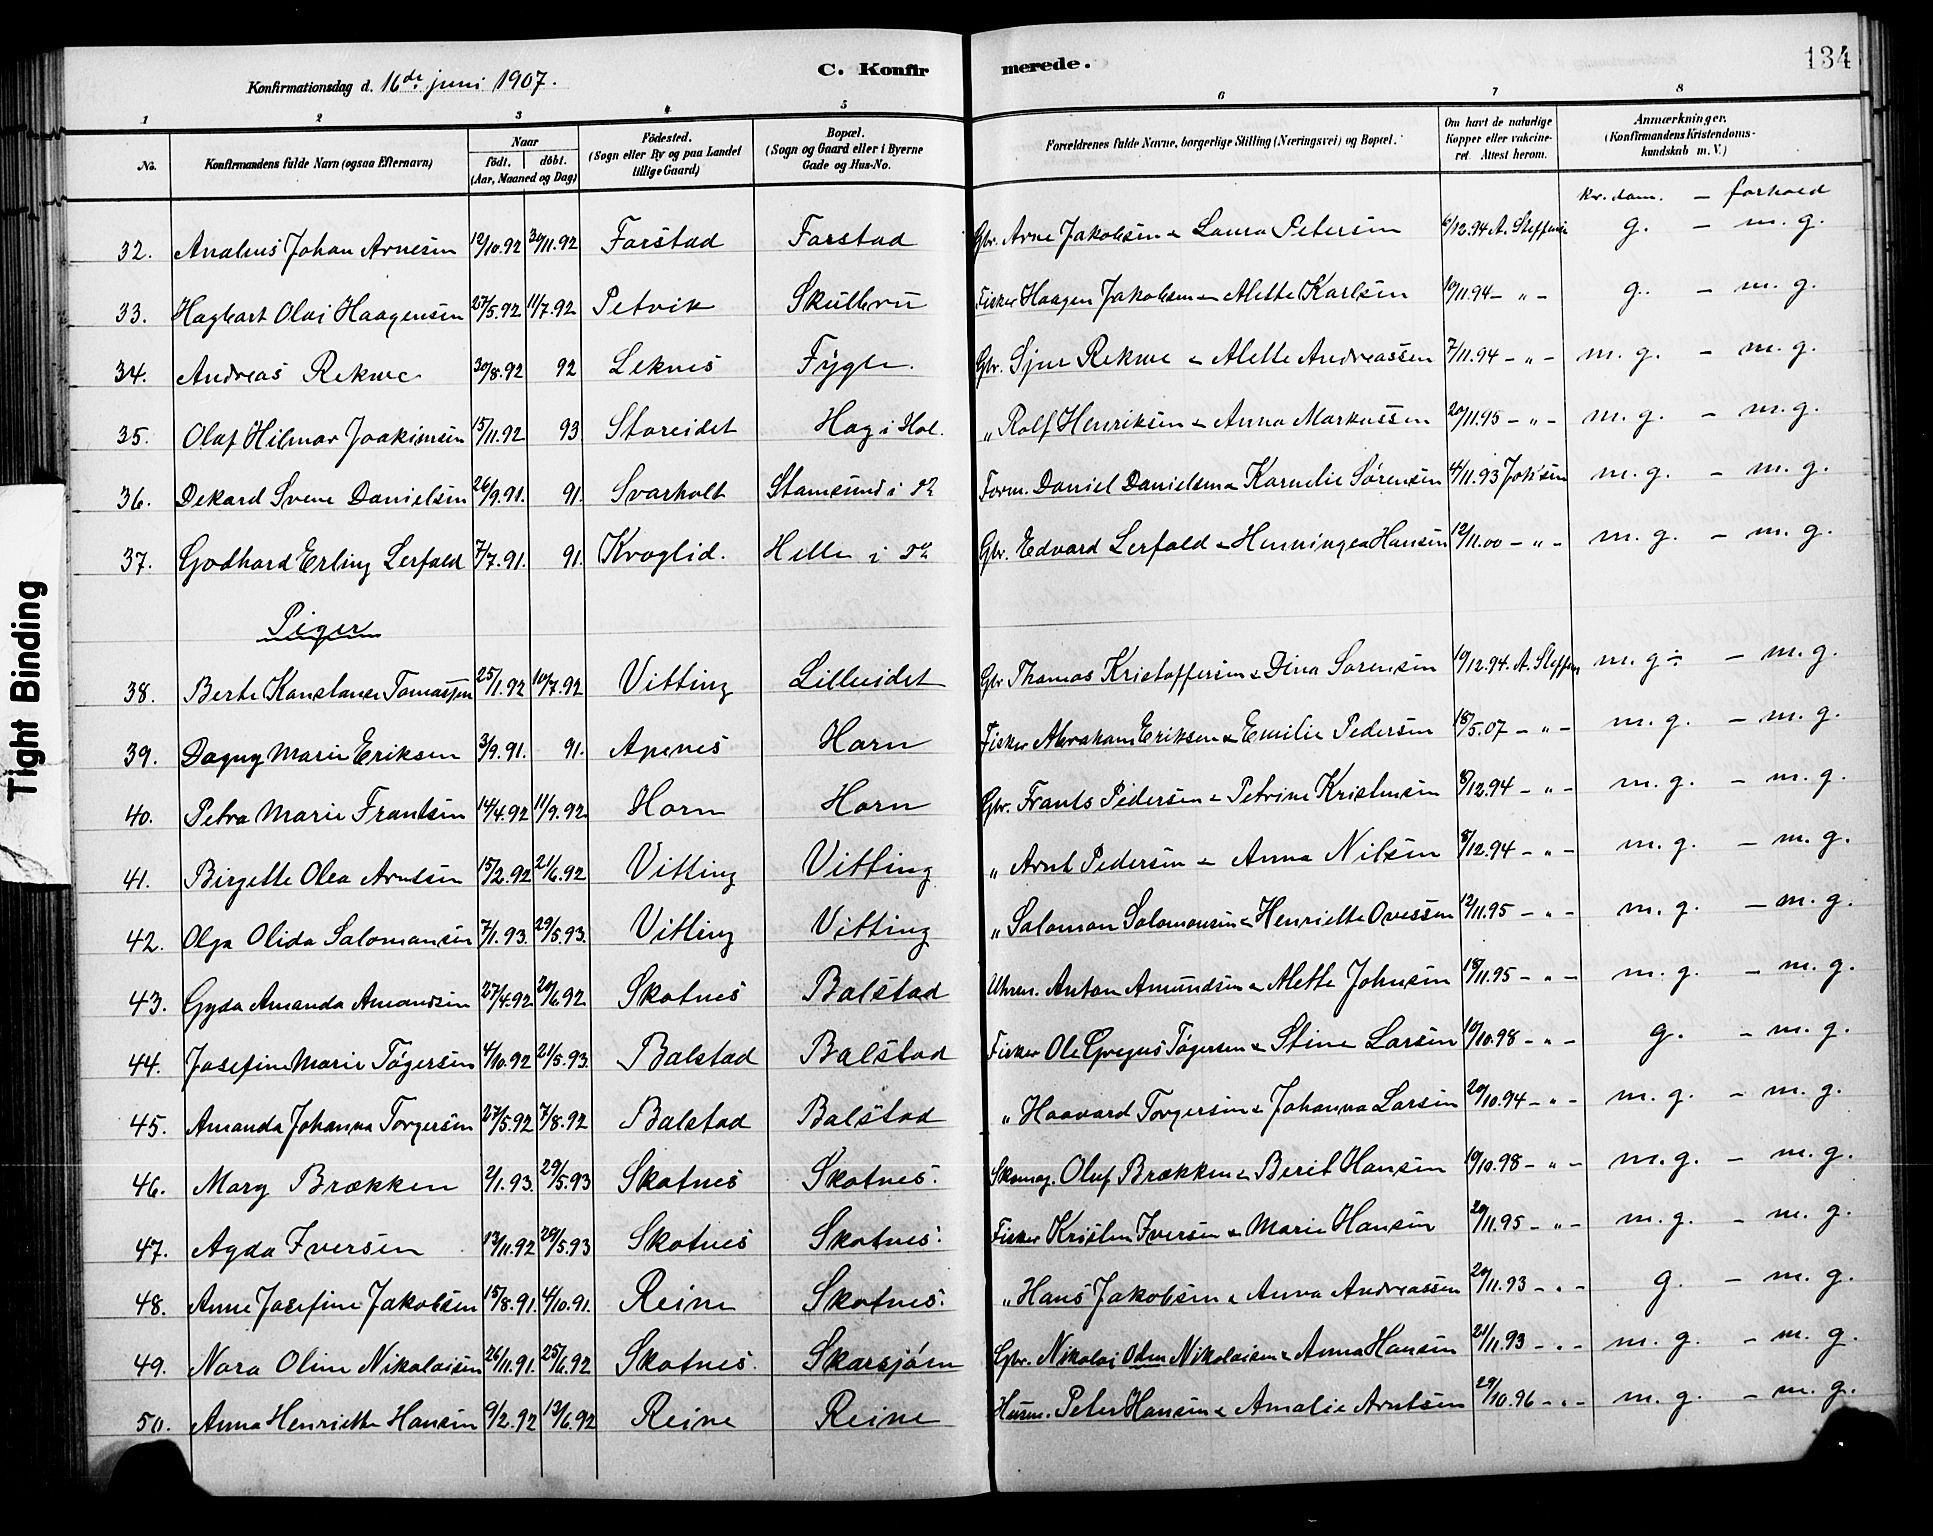 134
Konfirmationsdag d. 16de juni 1907.
C. Konfirmerede.
1 2 3 4 5 6 7 8
No. Konfirmandens fulde Navn (ogsaa Efternavn) Naar födt. döbt. (Aar, Maaned og Dag) Födested. (Sogn eller By og paa Landet tillige Gaard) Bopæl. (Sogn og Gaard eller i Byerne Gade og Hus-No. Forældrenes fulde Navne, borgerlige Stilling (Næringsvei) og Bopæl. Om havt de naturlige Kopper eller vakcineret. Attest herom. Anmærkninger. (Konfirmandens Kristendomskundskab m. V.)
kr.dom. - forhold
32. Analius Johan Arnesen 12/10.92 30/11.92 Farstad Farstad Gbr. Arne Jakobsen & Laura Petersen 6/12.94 A. Steffens g. - m. g.
33. Hagbart Olai Haagensen 27/5.92 11/7.92 Petvik Skulbru Fisker Haagen Jakobsen & Alette Karlsen 10/11.94 - " - g. - m. g.
34. Andreas Rekwe 30/8.92 92 Leknes Fygle. Gbr. Sjur Rekwe & Alette Andreassen 7/11.94 - " - m. g. - m. g.
35. Olaf Hilmar Joakimsen 15/11.92 93 Storeidet Hag i Hol. " Rolf Henriksen & Anna Markussen 20/11.95 - " - m. g. - m. g.
36. Dekard Svene Danielsen 26/9.91. 91. Svarholt Stamsund i do Form. Daniel Danielsen & Kornelie Sørensen 4/11.93 Johsen m. g. - m. g.
37. Godhard Erling Lerfald 7/7.91. 91. Kroglid. Helle i do Gbr. Edvard Lerfald & Henningea Hansen 12/11.00 - " - m. g. - m. g.
Piger
38. Berte Konstanse Tomassen 25/1.92 10/7.92 Vitting Lilleeidet Gbr Thomas Kristoffersen & Dina Sørensen 10/12.94. A. Steffens m. g ÷ - m. g.
39. Dagny Marie Eriksen 3/9.91. 91. Apenes Horn Fisker Abraham Eriksen & Emilie Pedersen 18/5.07 - " - m. g. - m. g.
40. Petra Marie Frantsen 14/4.92 11/9.92 Horn Horn Gbr. Frants Pedersen & Petrine Kristensen 8/12.94 - " - m. g. - m. g.
41. Birgette Olea Arntsen 15/2.92 21/6.92 Vitting Vitting " Arnt Pedersen & Anna Nilsen 8/12.94 - " - m. g. - m. g.
42. Olga Olida Salomonsen 7/1.93. 29/5.93. Vitting Vitting " Salomon Salomonsen & Henriette Ovessen 12/11.95 - " - m. g. - m. g.
43. Gyda Amanda Amandsen 27/4.92 20/6.92 Skotnes Balstad Uhrm. Anton Amundsen & Alette Johnsen 18/11.95 - " - m. g. - m. g.
44. Josefine Marie Tøgersen 4/10.92 21/5.93. Balstad Balstad Fisker Ole Gregus Tøgersen & Stine Larsen 10/10.98 - " - g. - m. g.
45. Amanda Johanna Torgersen 27/5.92 7/8.92 Balstad Balstad " Haavard Torgersen & Johanna Larsen 20/10.94 - " - m. g. - m. g.
46. Mary Brækken 2/1.93. 29/5.93 Skotnes Skotnes. Skomag. Oluf Brækken & Berit Hansen 10/10.98 - " - m. g. - m. g.
47. Agda Iversen 13/11.92 29/5.93 Skotnes Skotnes. Fisker Kristen Iversen & Marie Hansen 20/11.95 - " - m. g. - m. g.
48. Anne Josefine Jakobsen 15/8.91. 4/10.91. Reine Skotnes. " Hans Jakobsen & Anna Andreassen 20/11.93 - " - g. - m. g.
49. Nora Oline Nikolaisen 26/11.91. 25/6.92 Skotnes. Skarsjøen Gbr. Nikolai Oden Nikolaisen & Anna Hansen 21/11.93 - " - m. g. - m. g.
50. Anna Henriette Hansen 9/2.92 13/6.92 Reine Reine Husm. Peter Hansen & Amalie Arntsen 29/10.96 - " - m. g. - m. g.
Tight Binding